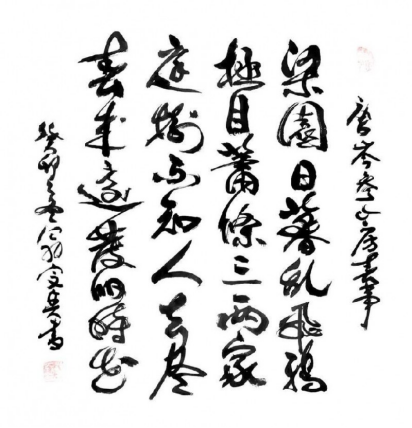 唐岑参山房春事
梁園日暮乱飛鴉
極目蕭條三兩家
庭樹不知人去尽
春来還發旧時花
癸卯